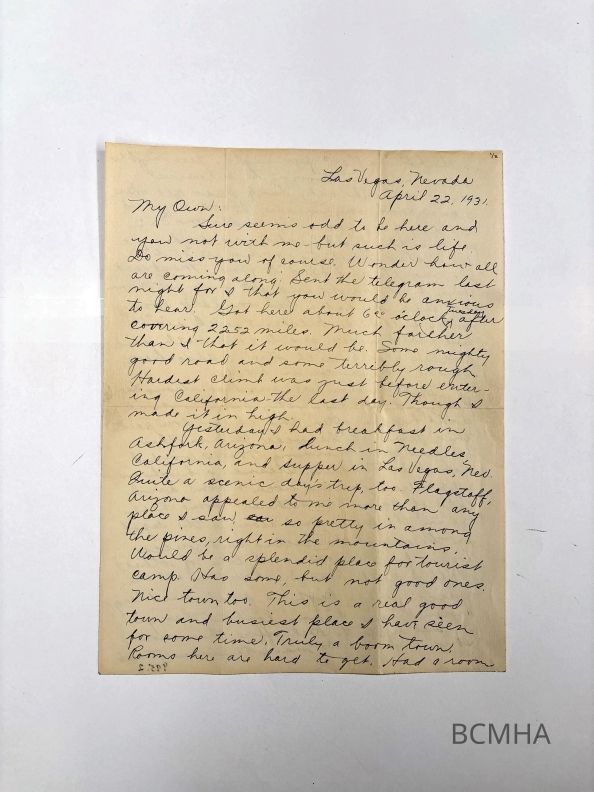 1/2
Las Vegas, Nevada
April 22, 1931.
My Own:
Sure seems odd to be here and
you not with me - but such is life.
Do miss you of course. Wonder how all
are coming along. Sent the telegram last
night for I that you would be anxious
to hear. Got here about 6 00 o'clock, Tuesday after
covering 2252 miles. Much farther
than I that it would be. Some mighty
good road and some terribly rough.
Hardest climb was just before enter-
ing California - the last day. Though I
made it in high.
Yesterday I had breakfast in
Ashfork, Arizona, lunch in Needles,
California, and supper in Las Vegas, Nev.
Quite a scenic day's trip, too. Flagstaff,
Arizona appealed to me more than any
place I saw, so pretty in among
the pines, right in the mountains.
Would be a splendid place for tourist
camp. Has some, but not good ones.
Nice town too. This is a real good
town and busiest place I have seen
for some time. Truly a boom town.
Rooms here are hard to get. Had a room
BCMHA